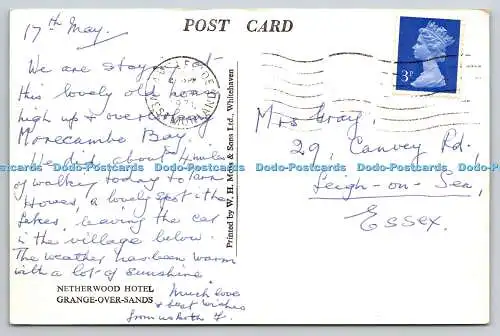 POST CARD
17th May.
We are staying at
this lovely old house
high up & overlooking
Morecambe Bay.
We did about 4 miles
of walking today to Tarn
Howes, a lovely spot in the
Lakes, leaving the car
in the village below.
The weather has been warm
with a lot of sunshine.
Much love
& best wishes
from us both
NETHERWOOD HOTEL
GRANGE-OVER-SANDS
Printed by W. H. Moss & Sons Ltd., Whitehaven
3P
Mrs Gray,
29, Canvey Rd,
Leigh-on-Sea,
Essex.
Dodo-Postcards Dodo-Postcards Dodo-Postcards Dodo-Postcards Dodo-Postcards